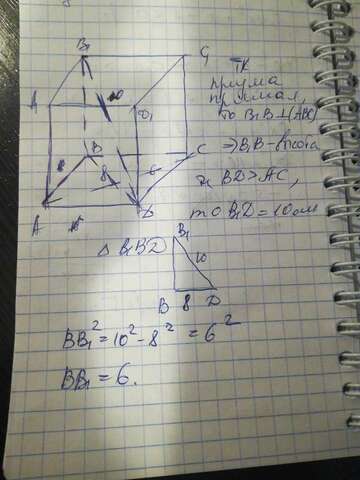 B₁
C₁
A
10
D₁
B
C
8
6
A
D
Тк
призма
прямая,
то B₁B⊥(ABC)
⇒B₁B-высота
тк BD>AC,
то B₁D=10см
△ B₁BD
B₁
10
B 8 D
BB₁² = 10² - 8² = 6²
BB₁ = 6.